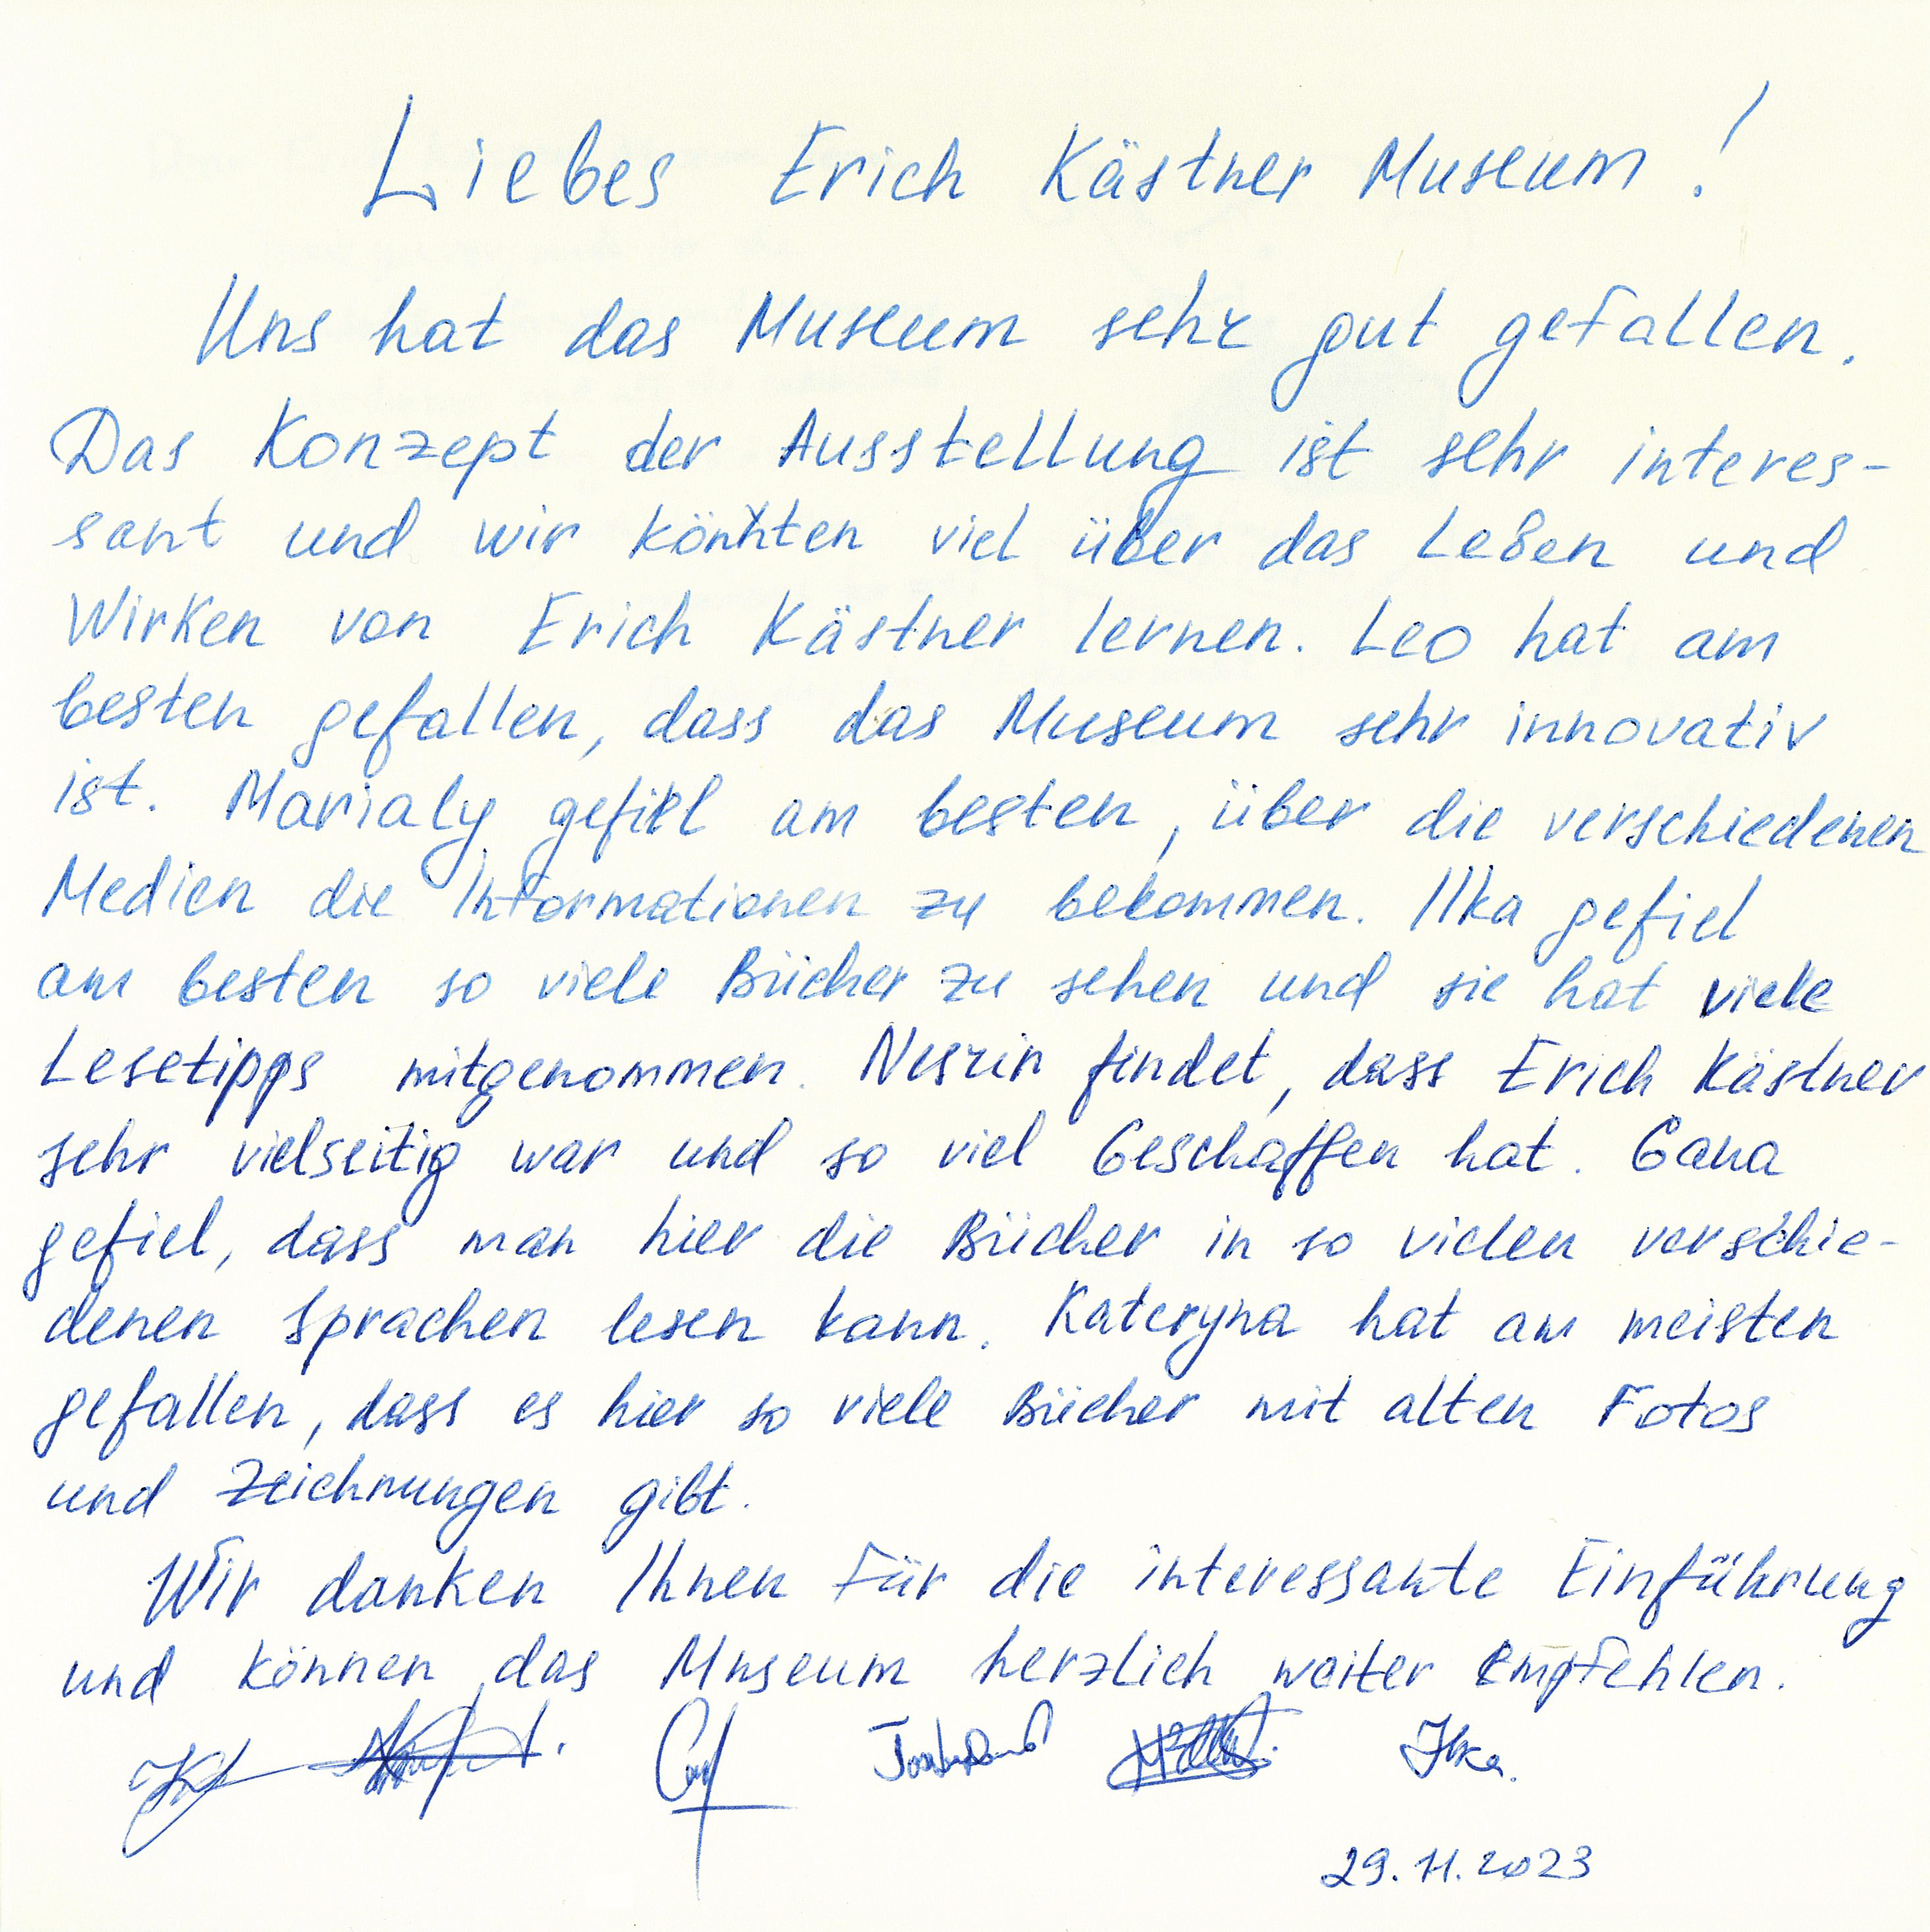 Liebes Erich Kästner Museum!
Uns hat das Museum sehr gut gefallen.
Das Konzept der Ausstellung ist sehr interes-
sant und wir könnten viel über das Leben und
Wirken von Erich Kästner lernen. Leo hat am
besten gefallen, dass das Museum sehr innovativ
ist. Marialy gefiel am besten, über die verschiedenen
Medien die Informationen zu bekommen. Ilka gefiel
am besten so viele Bücher zu sehen und sie hat viele
Lesetipps mitgenommen. Nesrin findet, dass Erich Kästner
sehr vielseitig war und so viel Geschaffen hat. Gana
gefiel, dass man hier die Bücher in so vielen verschie-
denen Sprachen lesen kann. Kateryna hat am meisten
gefallen, dass es hier so viele Bücher mit alten Fotos
und Zeichnungen gibt.
Wir danken Ihnen für die interessante Einführung
und können das Museum herzlich weiter empfehlen.
Ilka.
29.11.2023